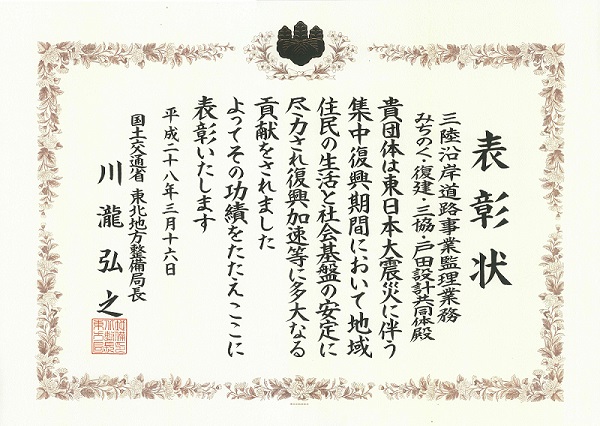 表彰状
三陸沿岸道路事業監理業務
みちのく・復建・三協・戸田設計共同体殿
貴団体は東日本大震災に伴う
集中復興期間において地域
住民の生活と社会基盤の安定に
尽力され復興加速等に多大なる
貢献をされました
よってその功績をたたえここに
表彰いたします
平成二十八年三月十六日
国土交通省 東北地方整備局長
川瀧弘之